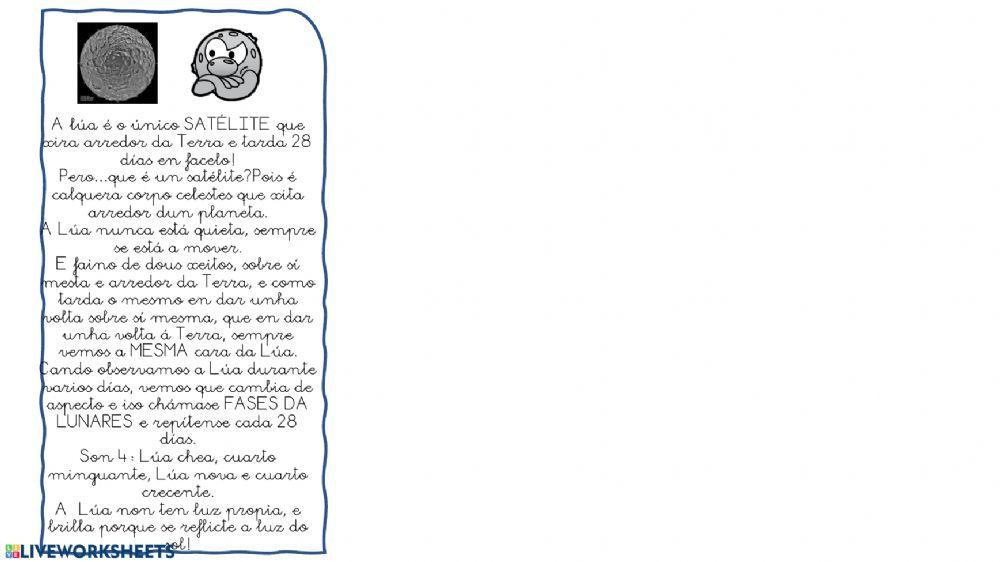 A lúa é o único SATÉLITE que
xira arredor da Terra e tarda 28
días en facelo!
Pero...que é un satélite?Pois é
calquera corpo celestes que xita
arredor dun planeta.
A Lúa nunca está quieta, sempre
se está a mover.
E faino de dous xeitos, sobre sí
mesta e arredor da Terra, e como
tarda o mesmo en dar unha
volta sobre sí mesma, que en dar
unha volta á Terra, sempre
vemos a MESMA cara da Lúa.
Cando observamos a Lúa durante
varios días, vemos que cambia de
aspecto e iso chámase FASES DA
LUNARES e repítense cada 28
días.
Son 4: Lúa chea, cuarto
minguante, Lúa nova e cuarto
crecente.
A Lúa non ten luz propia, e
brilla porque se reflicte a luz do
sol!
LIVEWORKSHEETS